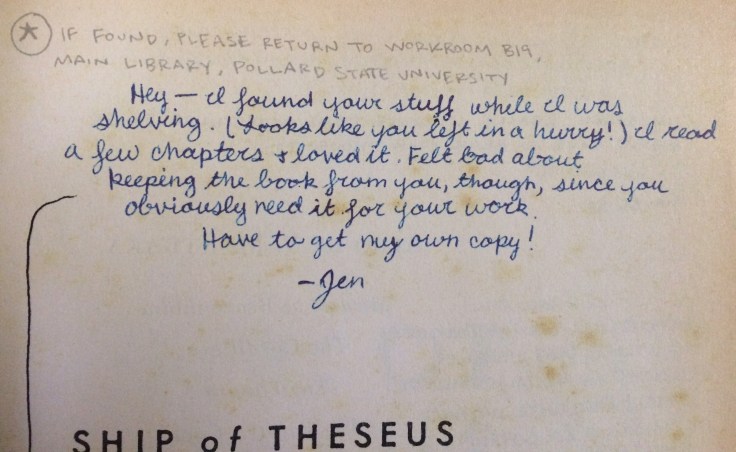 IF FOUND, PLEASE RETURN TO WORKROOM B19,
MAIN LIBRARY, POLLARD STATE UNIVERSITY
Hey — I found your stuff while I was
shelving. (Looks like you left in a hurry!) I read
a few chapters + loved it. Felt bad about
keeping the book from you, though, since you
obviously need it for your work.
Have to get my own copy!
—Jen
SHIP of THESEUS